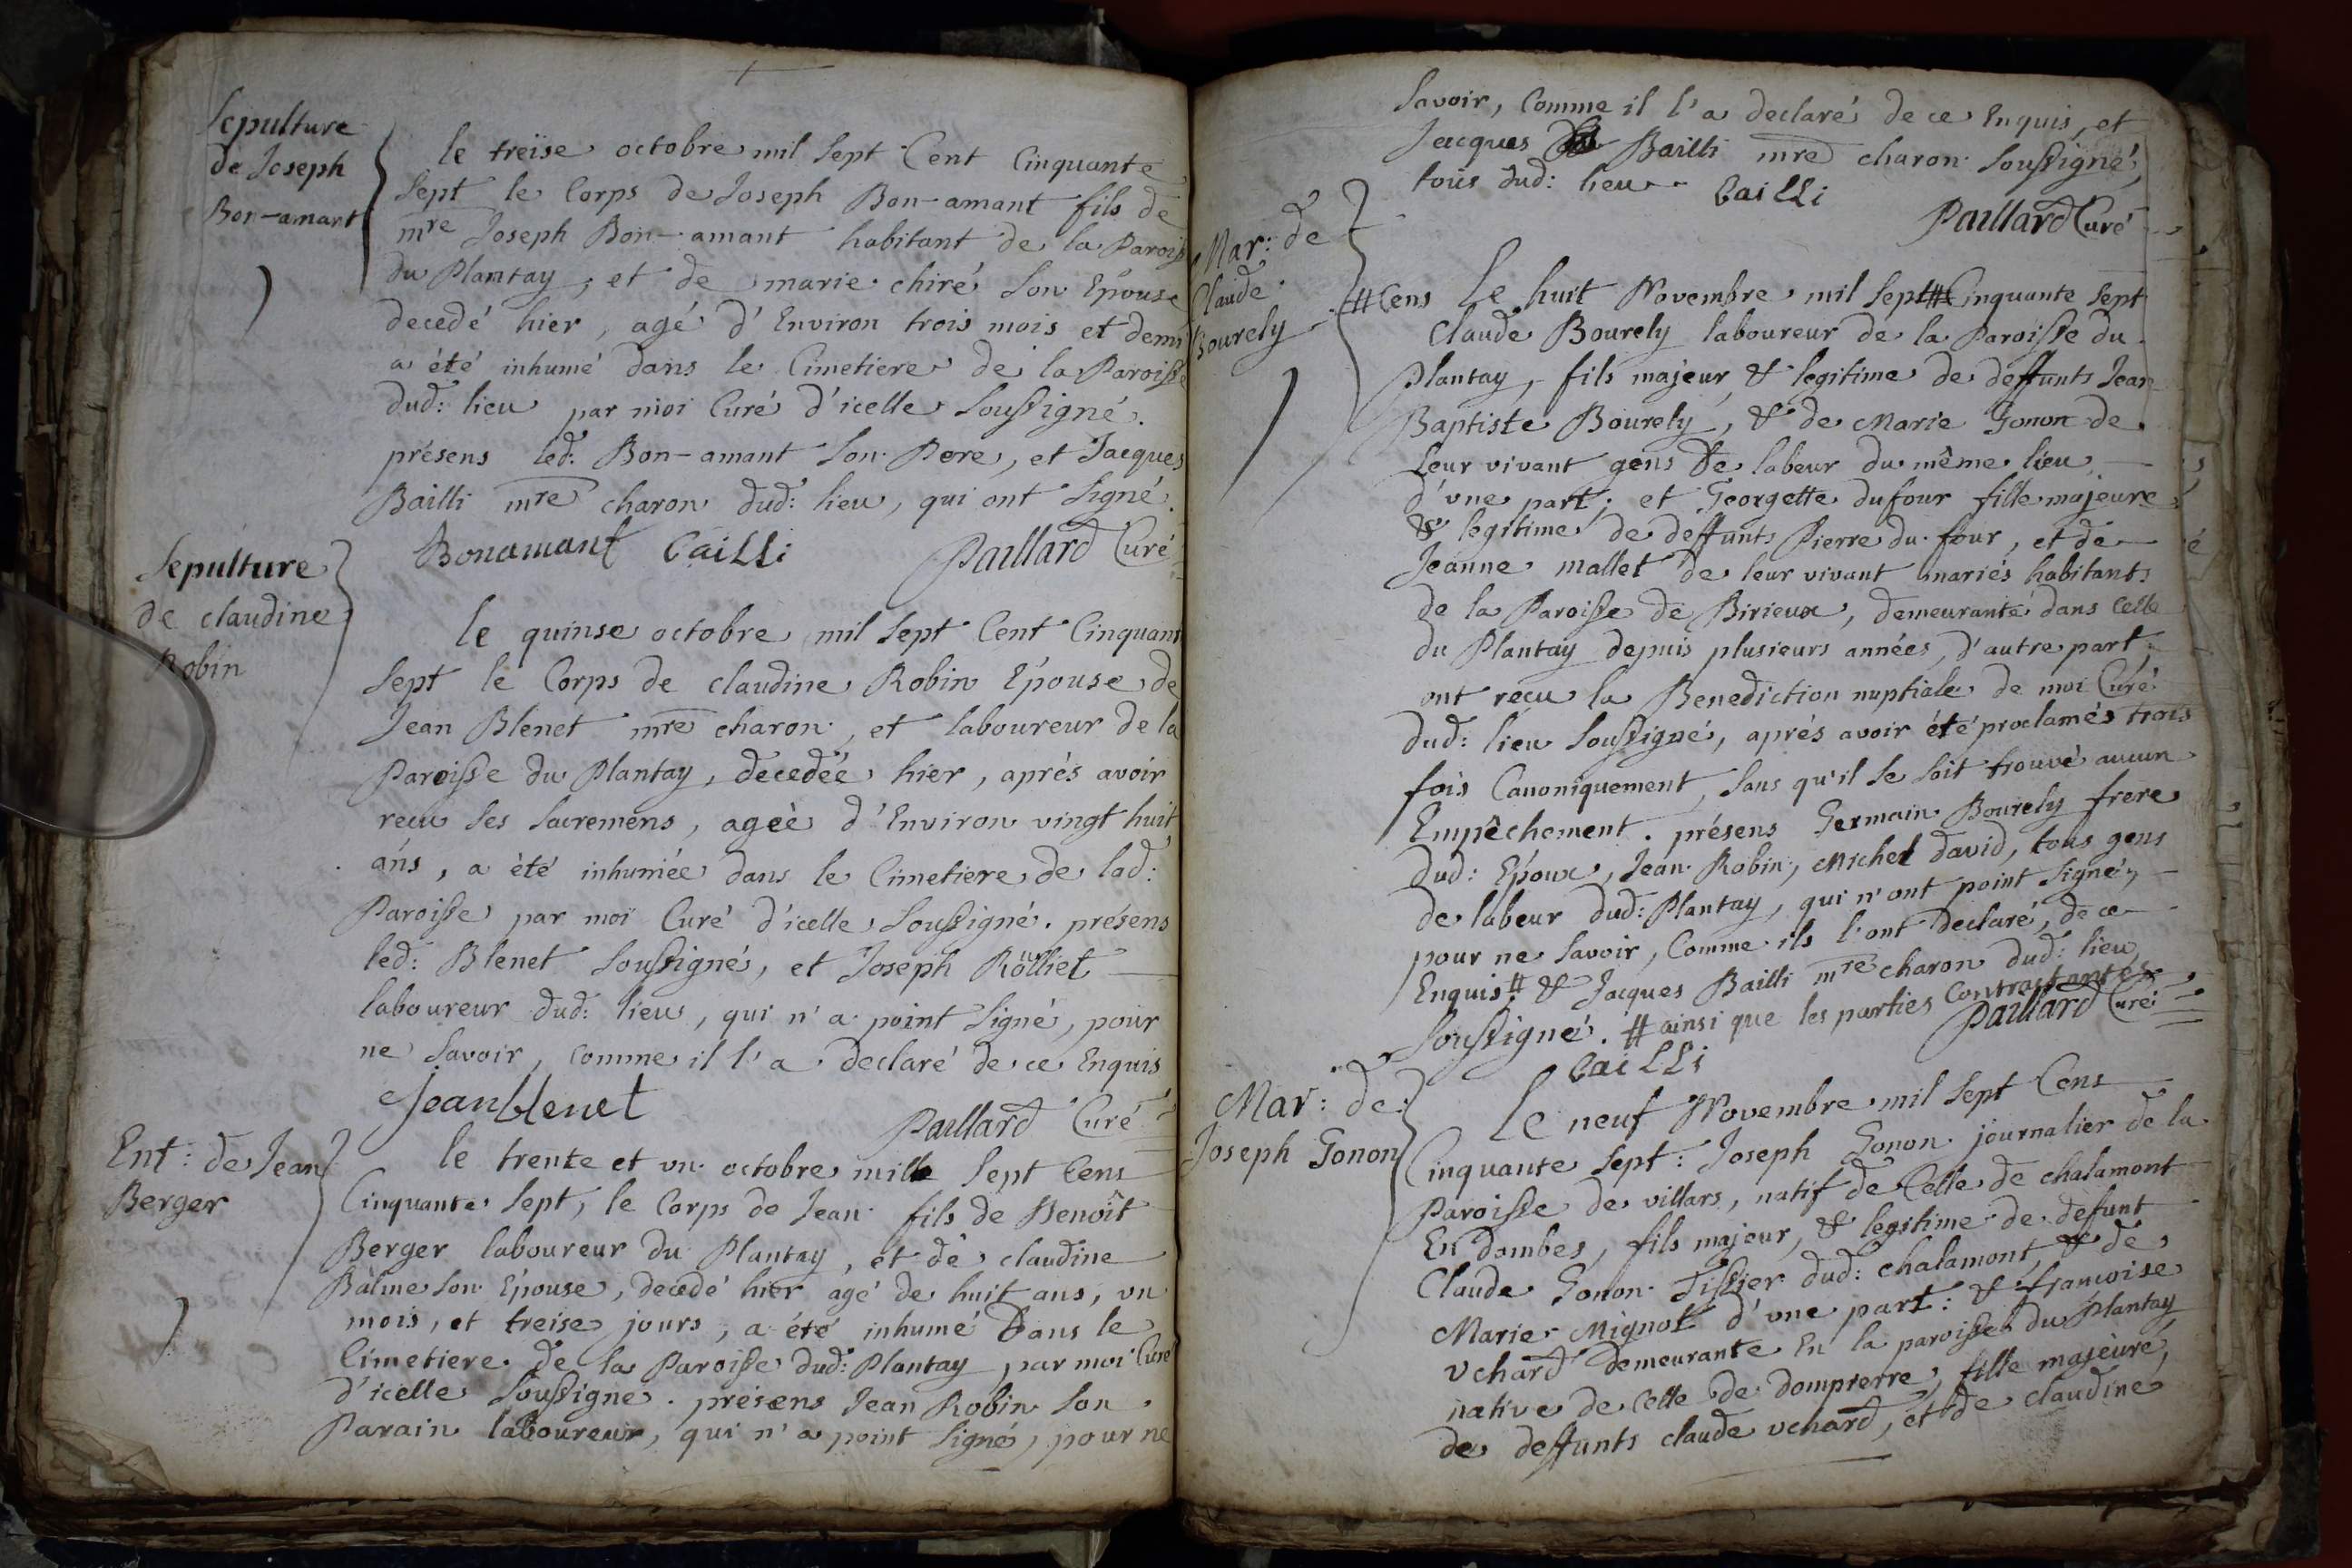 Sepulture
de Joseph
Bon-amant
le treise octobre mil sept Cent Cinquante
sept le Corps de Joseph Bon-amant fils de
mre Joseph Bon-amant habitant de la Paroiss
du Plantay, et de marie chiré son Epouse
decedé hier, agé d'Environ trois mois et demi
a été inhumé dans le Cimetiere de la Paroisse
dud: lieu par moi Curé d'icelle soussigné.
présens led: Bon-amant son Pere, et Jacques
Bailli mre charon dud: lieu, qui ont signé.
Bonamant bailli Paillard Curé
Sepulture
de claudine
Robin
le quinse octobre mil sept Cent Cinquant
sept le Corps de claudine Robin Epouse de
Jean Blenet mre charon, et laboureur de la
Paroisse du Plantay, decedée hier, aprés avoir
recu ses sacremens, ageè d'Environ vingt huit
ans, a èté inhumée dans le Cimetiere de lad:
Paroisse par moi Curé d'icelle soussigné. présens
led: Blenet soussigné, et Joseph Rolliet
laboureur dud: lieu, qui n'a point signé, pour
ne savoir, comme il l'a declaré de ce Enquis
Jean blenet Paillard Curé
Ent: de Jean
Berger
le trente et vn octobre mille sept Cens
Cinquante sept, le Corps de Jean fils de Benoît
Berger laboureur du Plantay, et de claudine
Balme son Epouse, decedé hier agé de huit ans, vn
mois, et treise jours, a été inhumé Dans le
Cimetiere de la Paroisse dud: Plantay par moi Curé
d'icelle soussigné. présens Jean Robin son
Parain laboureur, qui n'a point signé, pour ne
savoir, Comme il l'a declaré de ce Enquis, et
Jacques Bailli mre charon soussigné,
tous dud: lieu. bailli
Paillard Curé
Mar: de
Claude
Bourely
# Cens Le huit Novembre mil sept # Cinquante sept
Claude Bourely laboureur de la Paroisse du
Plantay, fils majeur, & legitime de deffunts Jean
Baptiste Bourely, & de Marie Gonon de
leur vivant gens de labeur du même lieu
d'vne part; et Georgette dufour fille majeure
& legitime de deffunts Pierre du four, et de
Jeanne mallet de leur vivant mariés habitants
de la Paroisse de Birieux, demeurante dans celle
du Plantay depuis plusieurs années, d'autre part,
ont reçu la Benediction nuptiale de moi Curé
dud: lieu soussigné, aprés avoir été proclamés trois
fois Canoniquement, sans qu'il se soit trouvé aucun
Empêchement. présens Germain Bourely frere
dud: Epoux, Jean Robin, Michel david, tous gens
de labeur dud: Plantay, qui n'ont point signé,
pour ne savoir, Comme ils l'ont declaré, de ce
Enquis # & Jacques Bailli mre charon dud: lieu
soussigné. # ainsi que les parties Contractantes
bailli Paillard Curé
Mar: de
Joseph Gonon
Le neuf Novembre mil sept Cens
Cinquante sept: Joseph Gonon journalier de la
Paroisse de villars, natif de Celle de chalamont
En dombes, fils majeur, & legitime de defunt
Claude Gonon Tissier dud: chalamont, & de
Marie Mignot d'vne part: & francoise
vchard demeurante En la paroisse du Plantay
native de Celle de dompierre, fille majeure,
de deffunts claude vchard, et de claudine